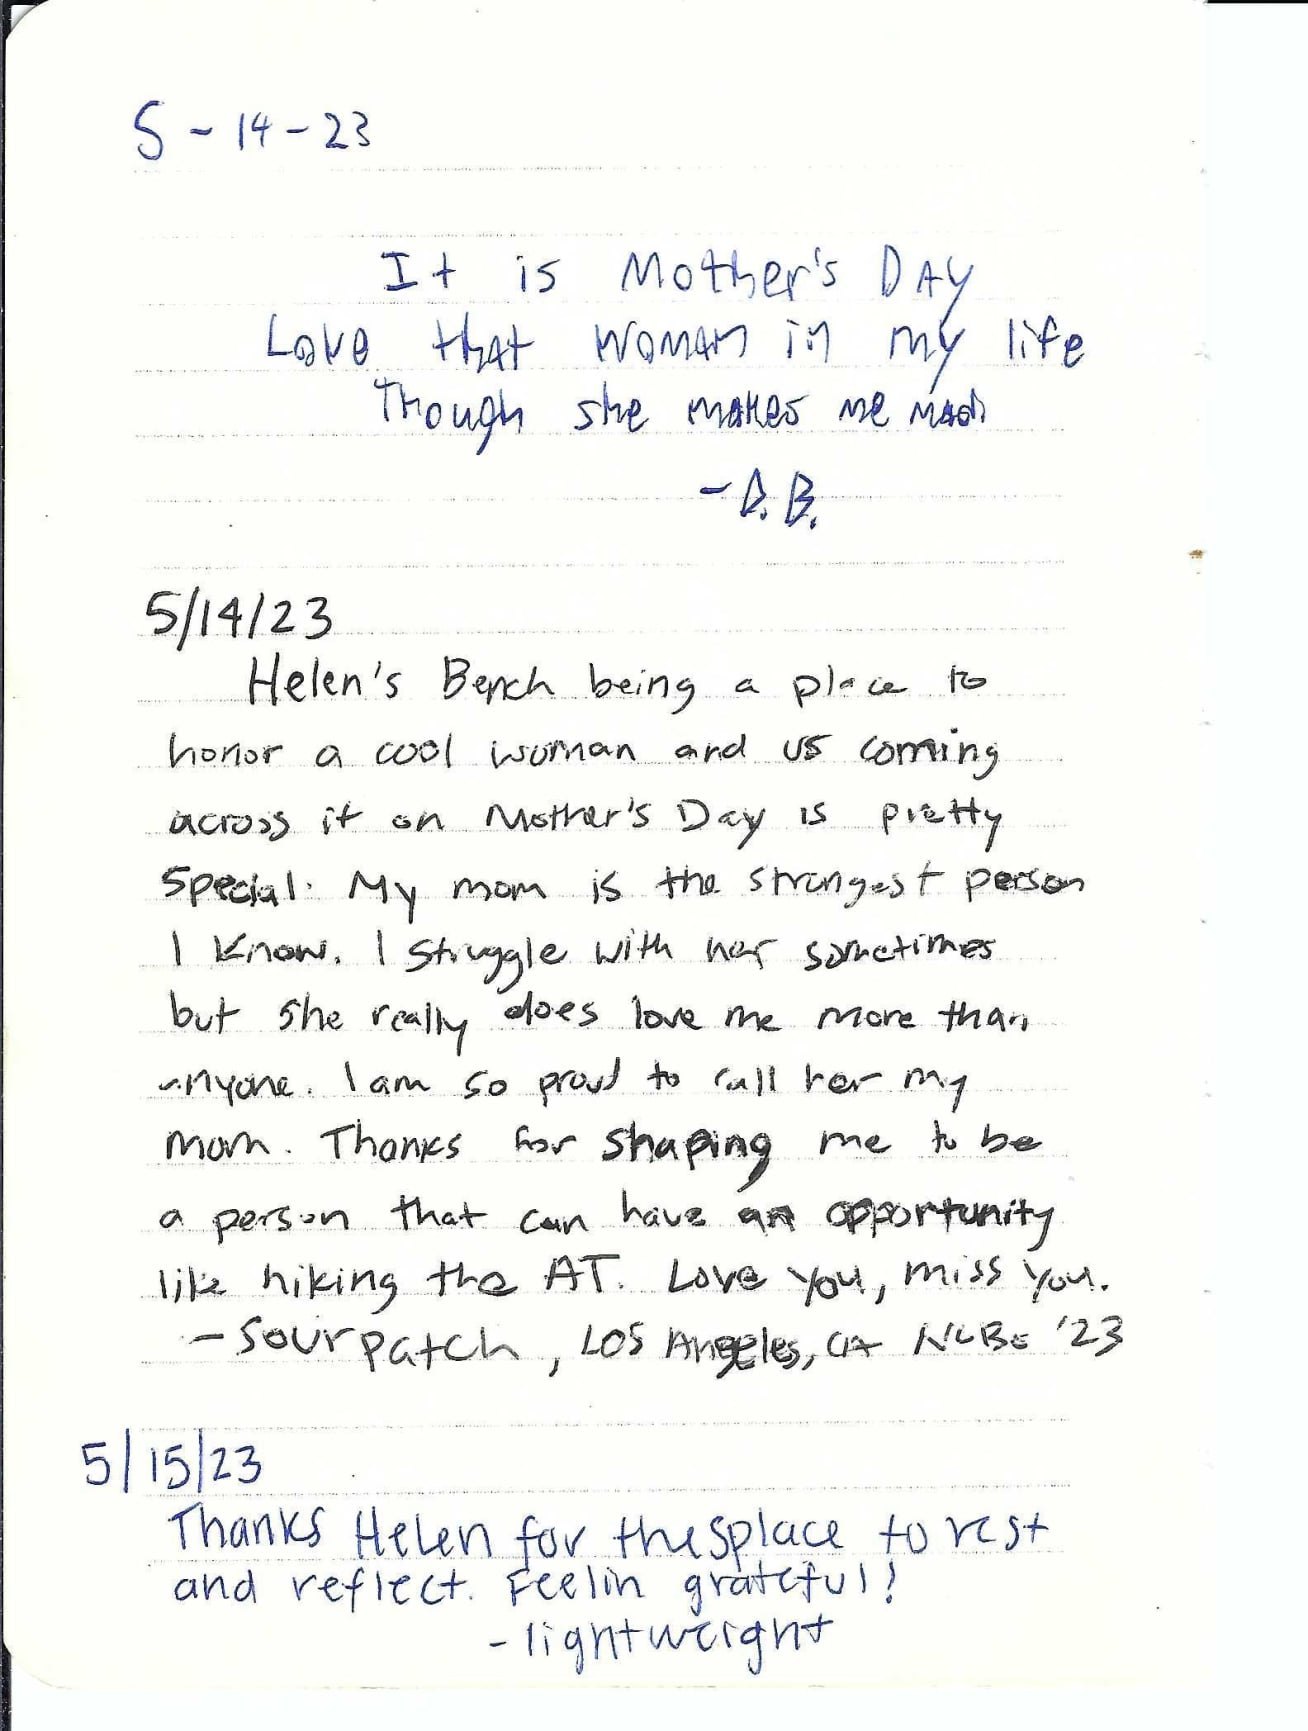 5-14-23
It is Mother's DAY
Love that woman in my life
Though she makes me mad
-D.B.
5/14/23
Helen's Bench being a place to
honor a cool woman and us coming
across it on Mother's Day is pretty
special. My mom is the strongest person
I know. I struggle with her sometimes
but she really does love me more than
anyone. I am so proud to call her my
mom. Thanks for shaping me to be
a person that can have an opportunity
like hiking the AT. Love you, miss you.
- Sour patch, Los Angeles, CA NOBO '23
5/15/23
Thanks Helen for the splace to rest
and reflect. Feelin grateful!
- lightweight